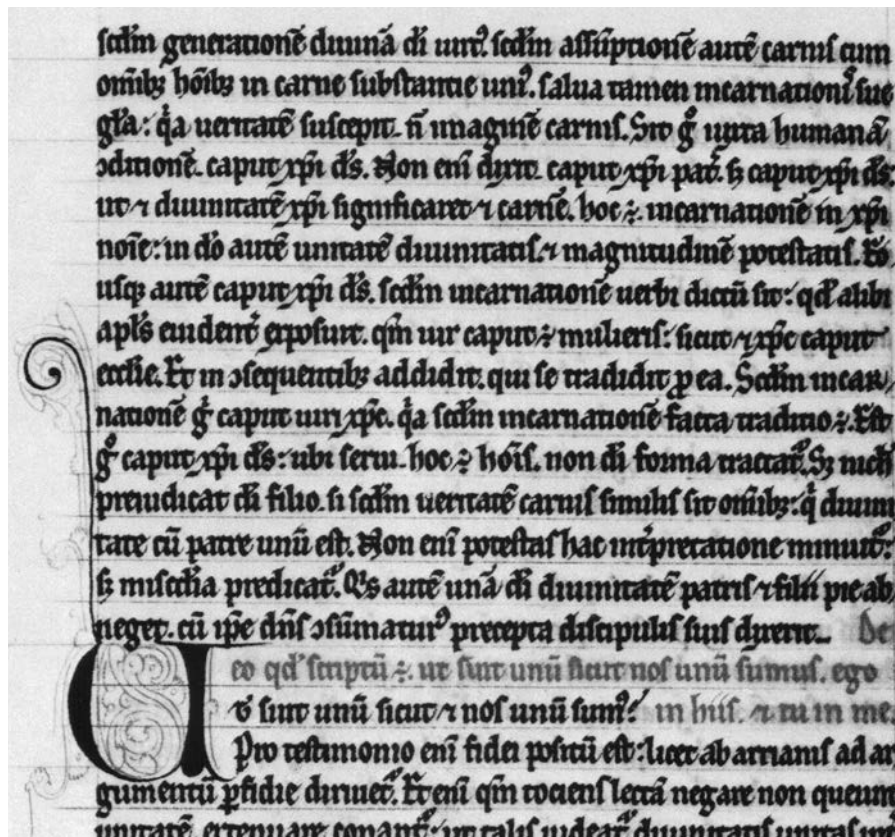 scd̄m generationē diuinā dī uirtꝰ. scd̄m assūptionē autē carnis cum
om̄ibꝫ hōibꝫ in carne substantie uniꝰ. salua tamen incarnationis sue
gl̄a: qͥa ueritatē suscepit. n̄ imaginē carnis. Sit gͦ iuxta humanā
ꝯditionē. caput xp̄i d̄s. Non enī dixit. caput xp̄i pat̄. sꝫ caput xp̄i d̄s:
ut ⁊ diuinitatē xp̄i significaret ⁊ carnē. hoc ÷. incarnationē in xp̄i
noīe: in dō autē unitatē diuinitatis. ⁊ magnitudinē potestatis. Eo
usqꝫ autē caput xp̄i d̄s. scd̄m incarnationē uerbi dictū sit: qd̄ alibi
apl̄s euident̄ exposuit. qm̄ uir caput ÷ mulieris: sicut ⁊ xp̄c caput
ecclie. Et in ꝯsequentibꝫ addidit. qui se tradidit ꝓ ea. Scd̄m incar
nationē gͦ caput uiri xp̄c. qͥa scd̄m incarnationē facta traditio ÷. Est
gͦ caput xp̄i d̄s: ubi serui. hoc ÷ hoīs. non dī forma tractat᷑. Sꝫ nich̄
preiudicat dī filio. si scd̄m ueritatē carnis similis sit om̄ibꝫ: qͥ diuini
tate cū patre unū est. Non enī potestas hac int̄pretatione minuit᷑:
sꝫ misc̄dia predicat᷑. Qͥs autē unā dī diuinitatē patris ⁊ filii pie ab
neget. cū ip̄e dn̄s ꝯsūmaturꝰ precepta discipulis suis dixerit. De
eo qd̄ scriptū ÷. ut sint unū sicut nos unū sumus. ego
Ut̄ sint unū sicut ⁊ nos unū sumꝰ: in hiis. ⁊ tu in me
Pro testimonio enī fidei positū est: licet ab arrianis ad ar
gumentū ꝑfidie diriuet᷑. Et enī qm̄ tociens lectā negare non queunt
unitatē. extenuare conant᷑: ut talis uideat᷑ diuinitatis unitas